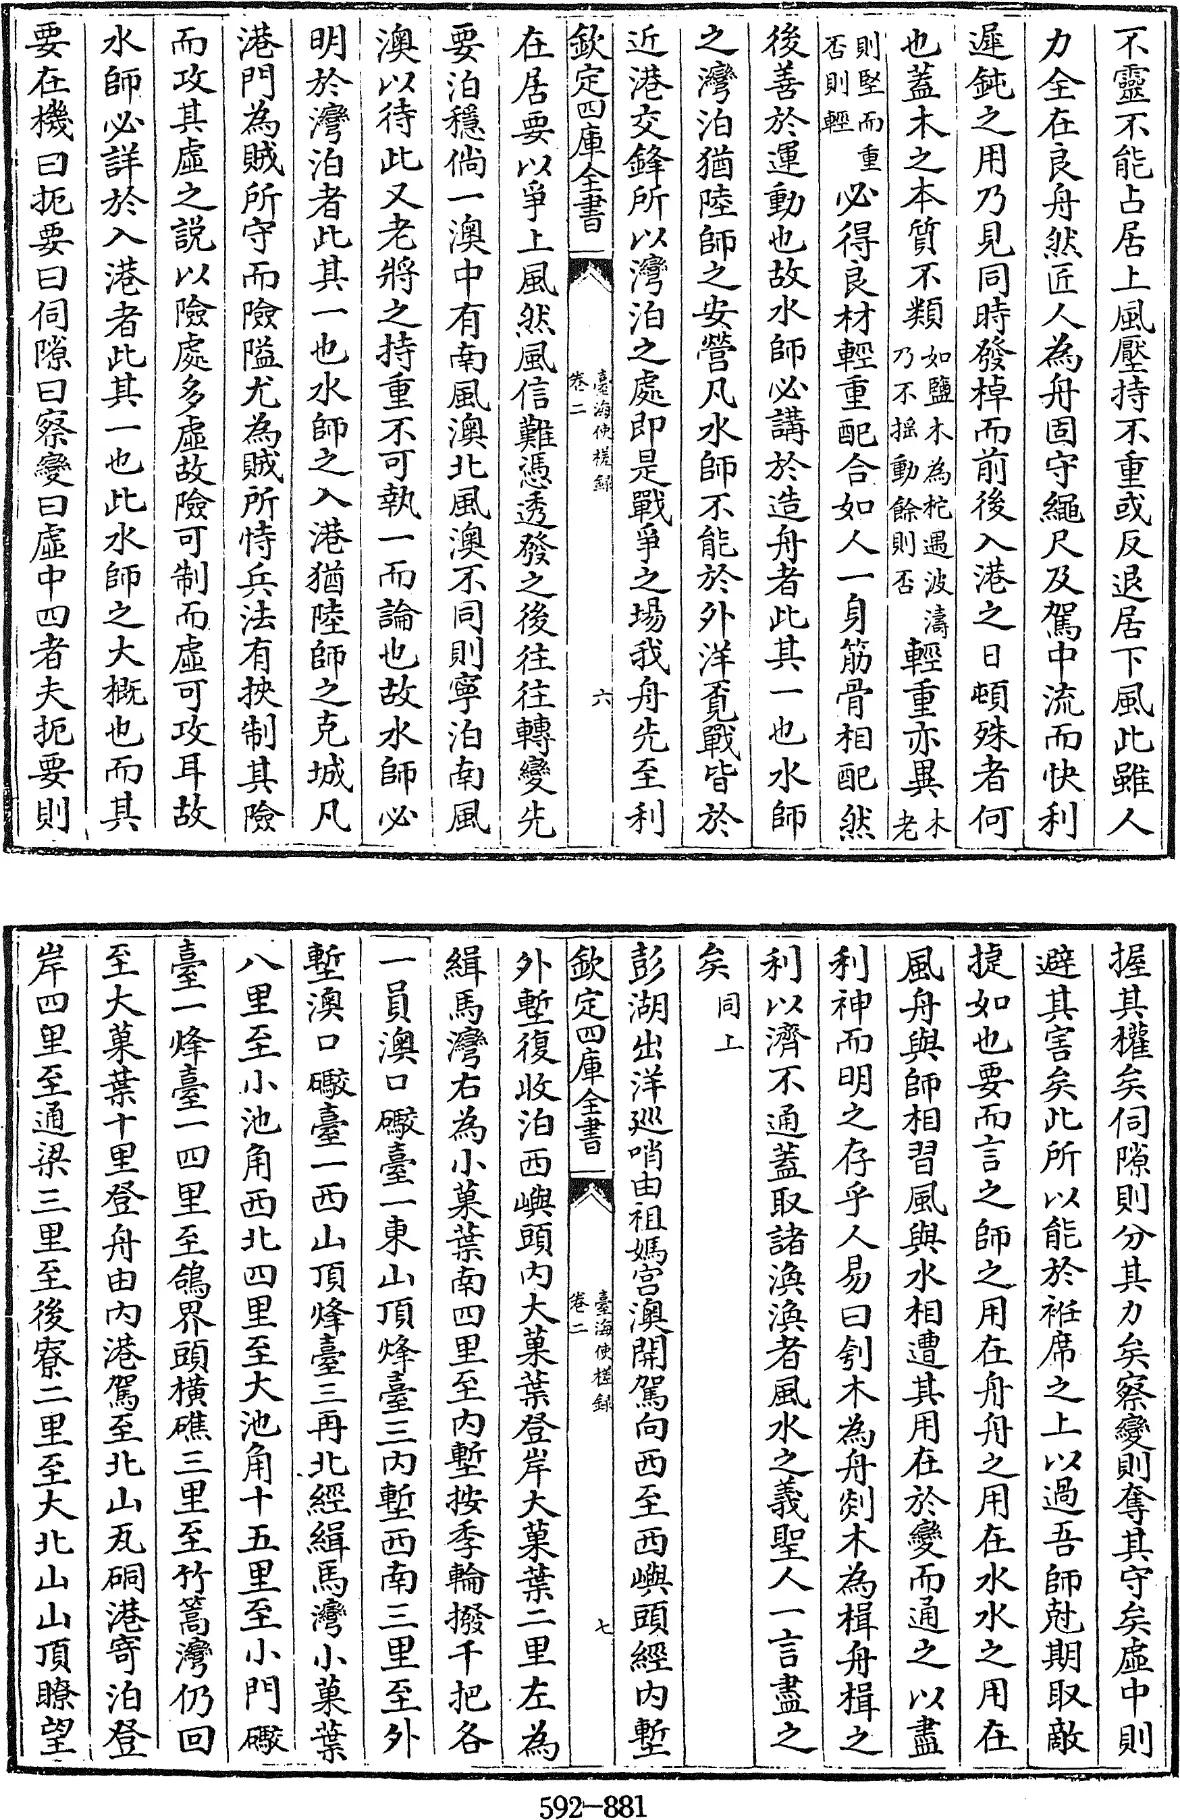 不靈不能占居上風壓持不重或反退居下風此雖人
力全在良舟然匠人為舟固守繩尺及駕中流而快利
遲鈍之用乃見同時發棹而前後入港之日頓殊者何
也蓋木之本質不類如鹽木為柁遇波濤乃不摇動餘則否輕重亦異木老
則堅而重否則輕必得良材輕重配合如人一身筋骨相配然
後善於運動也故水師必講於造舟者此其一也水師
之灣泊猶陸師之安營凡水師不能於外洋覓戰皆於
近港交鋒所以灣泊之處即是戰爭之場我舟先至利
欽定四庫全書
臺海使槎録
卷二
六
在居要以爭上風然風信難憑透發之後往往轉變先
要泊穩倘一澳中有南風澳北風澳不同則寧泊南風
澳以待此又老將之持重不可執一而論也故水師必
明於灣泊者此其一也水師之入港猶陸師之克城凡
港門為賊所守而險隘尤為賊所恃兵法有挾制其險
而攻其虛之說以險處多虛故險可制而虛可攻耳故
水師必詳於入港者此其一也此水師之大概也而其
要在機曰扼要曰伺隙曰察變曰虛中四者夫扼要則
握其權矣伺隙則分其力矣察變則奪其守矣虛中則
避其害矣此所以能於袵席之上以過吾師尅期取敵
捷如也要而言之師之用在舟舟之用在水水之用在
風舟與師相習風與水相遭其用在於變而通之以盡
利神而明之存乎人易曰刳木為舟剡木為楫舟楫之
利以濟不通蓋取諸渙渙者風水之義聖人一言盡之
矣同上
彭湖出洋巡哨由祖媽宮澳開駕向西至西嶼頭經内塹
欽定四庫全書
臺海使槎録
卷二
七
外塹復收泊西嶼頭内大菓葉登岸大菓葉二里左為
緝馬灣右為小菓葉南四里至内塹按季輪撥千把各
一員澳口礮臺一東山頂烽臺三内塹西南三里至外
塹澳口礮臺一西山頂烽臺三再北經緝馬灣小菓葉
八里至小池角西北四里至大池角十五里至小門礮
臺一烽臺一四里至鴿界頭橫礁三里至竹篙灣仍回
至大菓葉十里登舟由内港駕至北山瓦硐港寄泊登
岸四里至通梁三里至後寮二里至大北山山頂瞭望
592-881